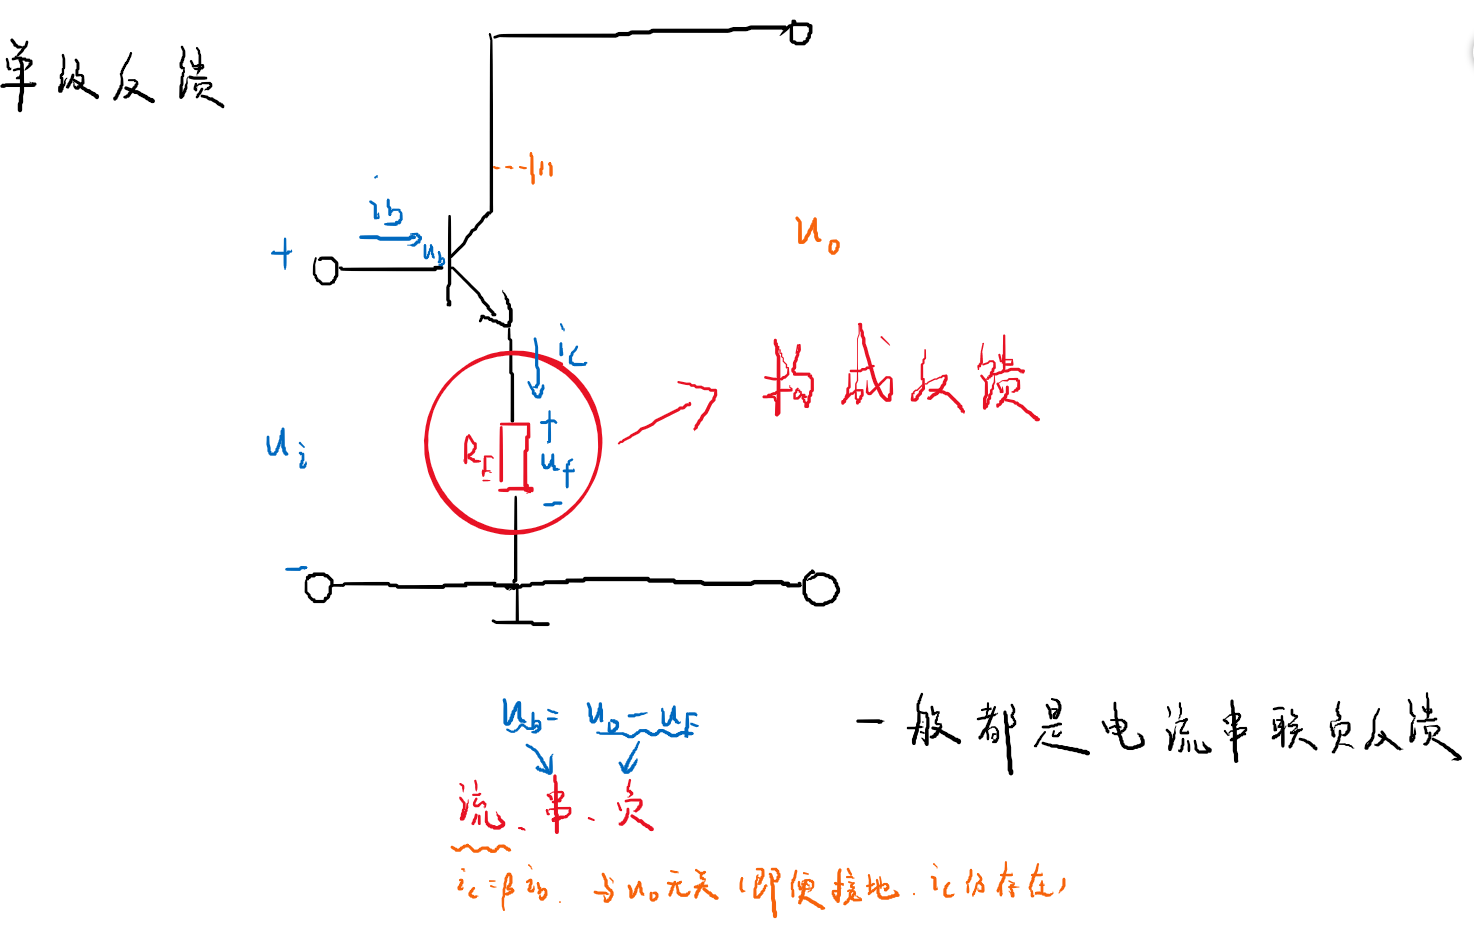 单级反馈
ib
+
ub
uo
ic
构成反馈
ui
RE
+
uf
-
-
ub = uo - uF
一般都是电流串联负反馈
流、串、负
ic=βib. 与uo无关（即便接地.ic仍存在）